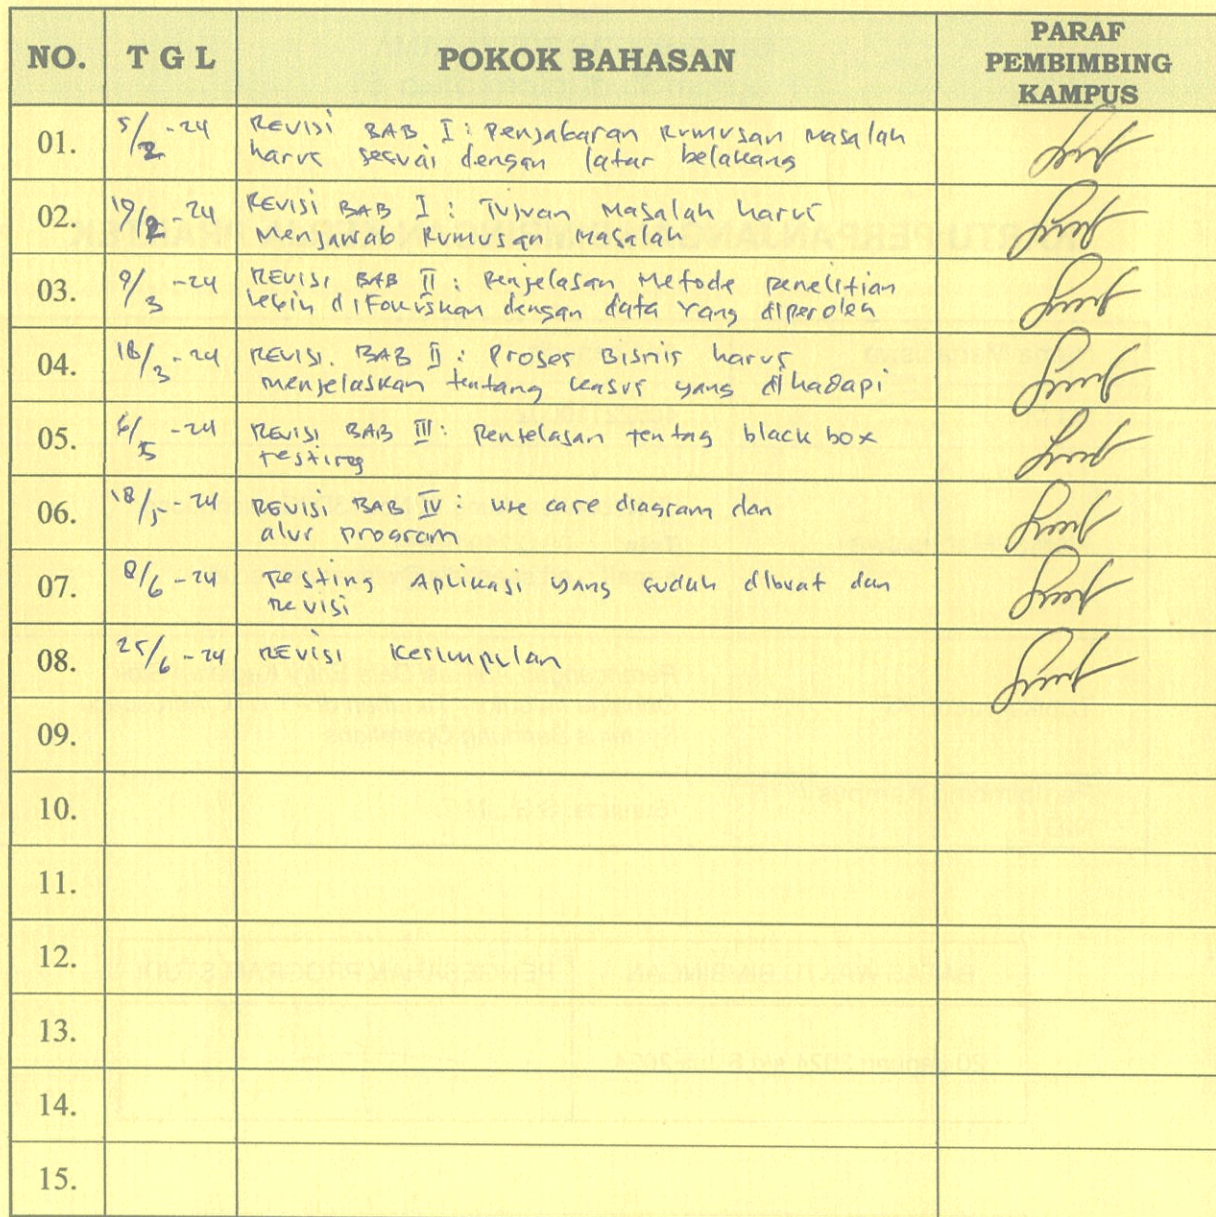 NO. T G L POKOK BAHASAN PARAF
PEMBIMBING
KAMPUS
01. 5/2 -24 REVISI BAB I : Penjabaran Rumusan Masalah
harus sesuai dengan latar belakang
02. 19/2 -24 REVISI BAB I : Tujuan Masalah harus
Menjawab Rumusan Masalah
03. 9/3 -24 REVISI BAB II : Penjelasan Metode penelitian
lebih difokuskan dengan data yang diperoleh
04. 18/3 -24 REVISI BAB II : Proses Bisnis harus
menjelaskan tentang kasus yang dihadapi
05. 6/5 -24 REVISI BAB III : Penjelasan tentag black box
testing
06. 18/5 -24 REVISI BAB IV : use case diagram dan
alur program
07. 8/6 -24 Testing Aplikasi yang sudah dibuat dan
REVISI
08. 25/6 -24 REVISI Kesimpulan
09.
10.
11.
12.
13.
14.
15.